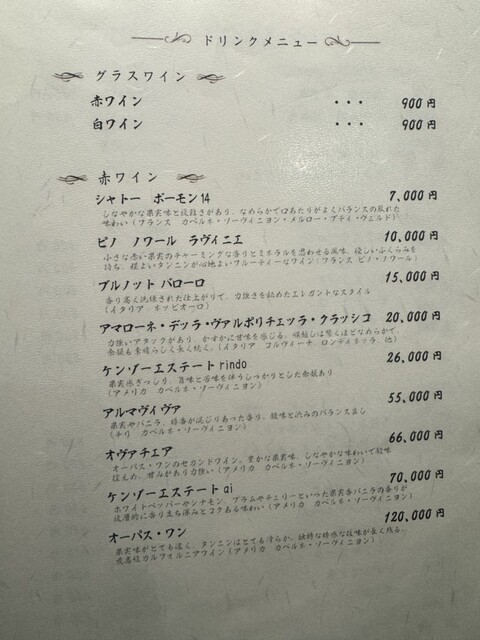 ドリンクメニュー
グラスワイン
赤ワイン ・・・ 900円
白ワイン ・・・ 900円
赤ワイン
シャトー ボーモン14 7,000円
しなやかな果実味と複雑さがあり、なめらかで口あたりがよくバランスの取れた
味わい(フランス カベルネ・ソーヴィニヨン・メルロー・プティ・ヴェルド)
ピノ ノワール ラヴィニエ 10,000円
小さな赤い果実のチャーミングな香りとミネラルを思わせる風味、優しいふくらみを
持ち、程よいタンニンが心地よいフルーティーなワイン(フランス ピノ・ノワール)
プルノット バローロ 15,000円
香り高く洗練された仕上がりで、力強さを秘めたエレガントなスタイル
(イタリア ネッビオーロ)
アマローネ・デッラ・ヴァルポリチェッラ・クラッシコ 20,000円
力強いアタックがあり、かすかに甘味を感じる。喉越しは驚くほどなめらかで、
余韻も素晴らしく長く続く。(イタリア コルヴィーナ、ロンディネッラ、他)
ケンゾーエステート rindo 26,000円
果実感ぎっしり、旨味と苦味を伴うしっかりとした余韻あり
(アメリカ カベルネ・ソーヴィニヨン)
アルマヴィヴァ 55,000円
果実やバニラ、樽香が混じりあった香り、酸味と渋みのバランスよし
(チリ カベルネ・ソーヴィニヨン)
オヴァチェア 66,000円
オーパス・ワンのセカンドワイン。豊かな果実味、しなやかな味わいで酸味
控えめ、甘みがあり力強い(アメリカ カベルネ・ソーヴィニヨン)
ケンゾーエステート ai 70,000円
ホワイトペッパーやシナモン、プラムやチェリーといった果実香バニラの香りが
複層的に香り立ち深みとコクある味わい(アメリカ カベルネ・ソーヴィニヨン)
オーパス・ワン 120,000円
果実味がとても濃く、タンニンはとても滑らか。独特な特感な後味が長く残る。
最高級カルフォルニアワイン(アメリカ カベルネ・ソーヴィニヨン)